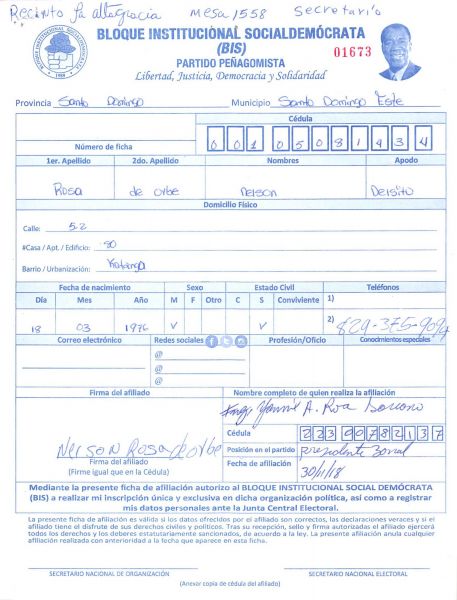 Recinto la altagracia mesa 1558 secretario
BLOQUE INSTITUCIONAL SOCIALDEMÓCRATA
(BIS)
01673
PARTIDO PEÑAGOMISTA
Libertad, Justicia, Democracia y Solidaridad
Provincia Santo Domingo Municipio Santo Domingo Este
Cédula
Número de ficha 001 0508193 4
1er. Apellido 2do. Apellido Nombres Apodo
Rosa de orbe Nelson Deisito
Domicilio Físico
Calle: 52
#Casa / Apt. / Edificio: 90
Barrio / Urbanización: Katanga
Fecha de nacimiento Sexo Estado Civil Teléfonos
Día Mes Año M F Otro C S Conviviente 1)
18 03 1976 V V 2) 829-375-9094
Correo electrónico Redes sociales Profesión/Oficio Conocimientos especiales
@
@
@
Firma del afiliado Nombre completo de quien realiza la afiliación
Ing. A. Rosa
Cédula 223 0078213 7
Nelson Rosa de orbe
Posición en el partido presidente zonal
Firma del afiliado
(Firme igual que en la Cédula)
Fecha de afiliación 30/1/18
Mediante la presente ficha de afiliación autorizo al BLOQUE INSTITUCIONAL SOCIAL DEMÓCRATA
(BIS) a realizar mi inscripción única y exclusiva en dicha organización política, así como a registrar
mis datos personales ante la Junta Central Electoral.
La presente ficha de afiliación es válida si los datos ofrecidos por el afiliado son correctos, las declaraciones veraces y si el
afiliado tiene el disfrute de sus derechos civiles y políticos. Tras su recepción, sello y firma autorizadas el afiliado ejercerá
todos los derechos y los deberes estatutariamente sancionados, de acuerdo a la ley. La presente afiliación anula cualquier
afiliación realizada con anterioridad a la fecha que aparece en esta ficha.
SECRETARIO NACIONAL DE ORGANIZACIÓN SECRETARIO NACIONAL ELECTORAL
(Anexar copia de cédula del afiliado)